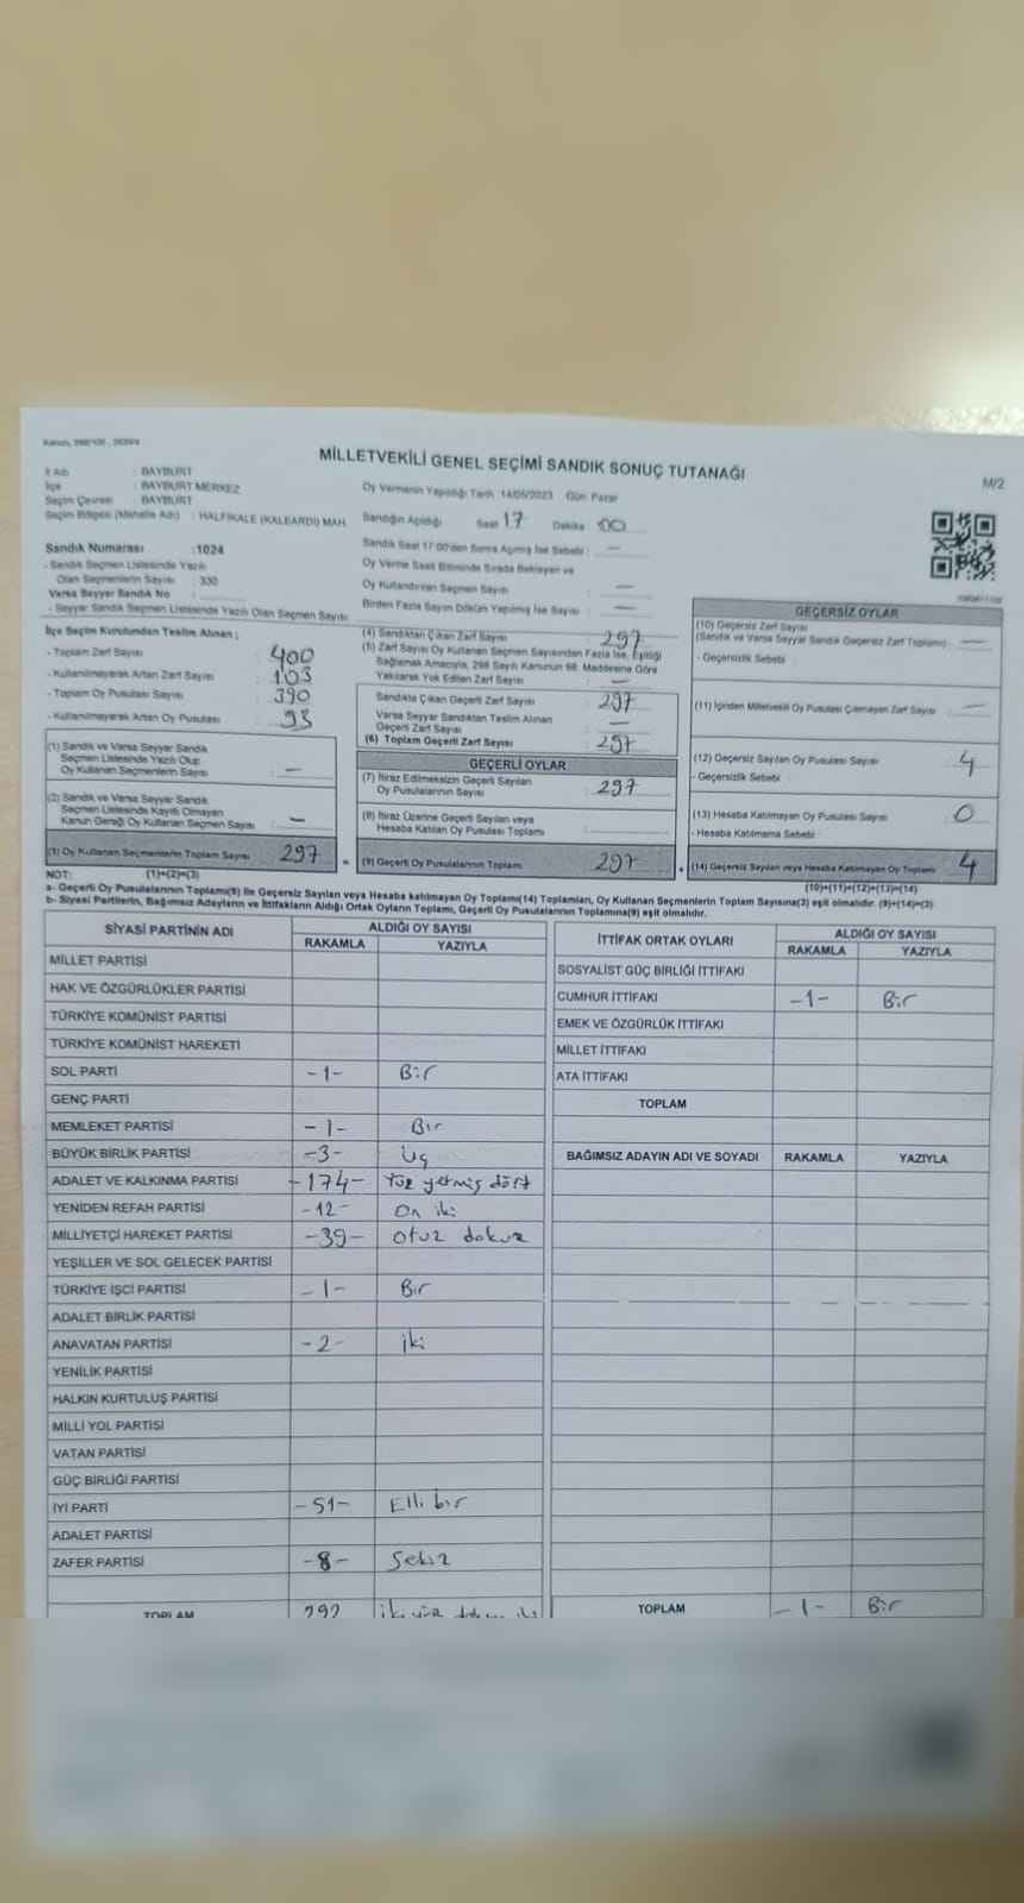 MİLLETVEKİLİ GENEL SEÇİMİ SANDIK SONUÇ TUTANAĞI
M/2
İl Adı : BAYBURT
İlçe : BAYBURT MERKEZ
Seçim Çevresi : BAYBURT
Seçim Bölgesi (Mahalle Adı) : HALFİKALE (KALEARDI) MAH.
Sandık Numarası :1024
- Sandık Seçmen Listesinde Yazılı
Olan Seçmenlerin Sayısı : 330
Varsa Seyyar Sandık No :
- Seyyar Sandık Seçmen Listesinde Yazılı Olan Seçmen Sayısı:
Oy Vermenin Yapıldığı Tarih :14/05/2023 Gün: Pazar
Sandığın Açıldığı Saat 17 Dakika 00
Sandık Saat 17:00'den Sonra Açılmış İse Sebebi : —
Oy Verme Saati Bitiminde Sırada Bekleyen ve
Oy Kullandırılan Seçmen Sayısı : —
Birden Fazla Sayım Döküm Yapılmış İse Sayısı : —
İlçe Seçim Kurulundan Teslim Alınan ;
- Toplam Zarf Sayısı : 400
- Kullanılmayarak Artan Zarf Sayısı : 103
- Toplam Oy Pusulası Sayısı : 390
- Kullanılmayarak Artan Oy Pusulası : 93
(1) Sandık ve Varsa Seyyar Sandık
Seçmen Listesinde Yazılı Olup
Oy Kullanan Seçmenlerin Sayısı : —
(2) Sandık ve Varsa Seyyar Sandık
Seçmen Listesinde Kayıtlı Olmayan
Kanun Gereği Oy Kullanan Seçmen Sayısı : —
(3) Oy Kullanan Seçmenlerin Toplam Sayısı : 297
(4) Sandıktan Çıkan Zarf Sayısı : 297
(5) Zarf Sayısı Oy Kullanan Seçmen Sayısından Fazla İse, Eşitliği
Sağlamak Amacıyla, 298 Sayılı Kanunun 98. Maddesine Göre
Yakılarak Yok Edilen Zarf Sayısı : —
Sandıkta Çıkan Geçerli Zarf Sayısı : 297
Varsa Seyyar Sandıktan Teslim Alınan
Geçerli Zarf Sayısı : —
(6) Toplam Geçerli Zarf Sayısı : 297
GEÇERLİ OYLAR
(7) İtiraz Edilmeksizin Geçerli Sayılan
Oy Pusulalarının Sayısı : 297
(8) İtiraz Üzerine Geçerli Sayılan veya
Hesaba Katılan Oy Pusulası Toplamı :
(9) Geçerli Oy Pusulalarının Toplamı : 297
GEÇERSİZ OYLAR
(10) Geçersiz Zarf Sayısı
(Sandık ve Varsa Seyyar Sandık Geçersiz Zarf Toplamı) : —
- Geçersizlik Sebebi :
(11) İçinden Milletvekili Oy Pusulası Çıkmayan Zarf Sayısı : —
(12) Geçersiz Sayılan Oy Pusulası Sayısı : 4
- Geçersizlik Sebebi :
(13) Hesaba Katılmayan Oy Pusulası Sayısı : 0
- Hesaba Katılmama Sebebi :
(14) Geçersiz Sayılan veya Hesaba Katılmayan Oy Toplamı : 4
NOT: (1)+(2)=(3)
(10)+(11)+(12)+(13)=(14)
a- Geçerli Oy Pusulalarının Toplamı(9) ile Geçersiz Sayılan veya Hesaba katılmayan Oy Toplamı(14) Toplamları, Oy Kullanan Seçmenlerin Toplam Sayısına(3) eşit olmalıdır. (9)+(14)=(3)
b- Siyasi Partilerin, Bağımsız Adayların ve İttifakların Aldığı Ortak Oyların Toplamı, Geçerli Oy Pusulalarının Toplamına(9) eşit olmalıdır.
SİYASİ PARTİNİN ADI ALDIĞI OY SAYISI
RAKAMLA YAZIYLA
MİLLET PARTİSİ
HAK VE ÖZGÜRLÜKLER PARTİSİ
TÜRKİYE KOMÜNİST PARTİSİ
TÜRKİYE KOMÜNİST HAREKETİ
SOL PARTİ -1- Bir
GENÇ PARTİ
MEMLEKET PARTİSİ -1- Bir
BÜYÜK BİRLİK PARTİSİ -3- Üç
ADALET VE KALKINMA PARTİSİ -174- Yüz yetmiş dört
YENİDEN REFAH PARTİSİ -12- On iki
MİLLİYETÇİ HAREKET PARTİSİ -39- otuz dokuz
YEŞİLLER VE SOL GELECEK PARTİSİ
TÜRKİYE İŞCİ PARTİSİ -1- Bir
ADALET BİRLİK PARTİSİ
ANAVATAN PARTİSİ -2- iki
YENİLİK PARTİSİ
HALKIN KURTULUŞ PARTİSİ
MİLLİ YOL PARTİSİ
VATAN PARTİSİ
GÜÇ BİRLİĞİ PARTİSİ
İYİ PARTİ -51- Elli bir
ADALET PARTİSİ
ZAFER PARTİSİ -8- Sekiz
TOPLAM 292 iki yüz
İTTİFAK ORTAK OYLARI ALDIĞI OY SAYISI
RAKAMLA YAZIYLA
SOSYALİST GÜÇ BİRLİĞİ İTTİFAKI
CUMHUR İTTİFAKI -1- Bir
EMEK VE ÖZGÜRLÜK İTTİFAKI
MİLLET İTTİFAKI
ATA İTTİFAKI
TOPLAM
BAĞIMSIZ ADAYIN ADI VE SOYADI RAKAMLA YAZIYLA
TOPLAM -1- Bir